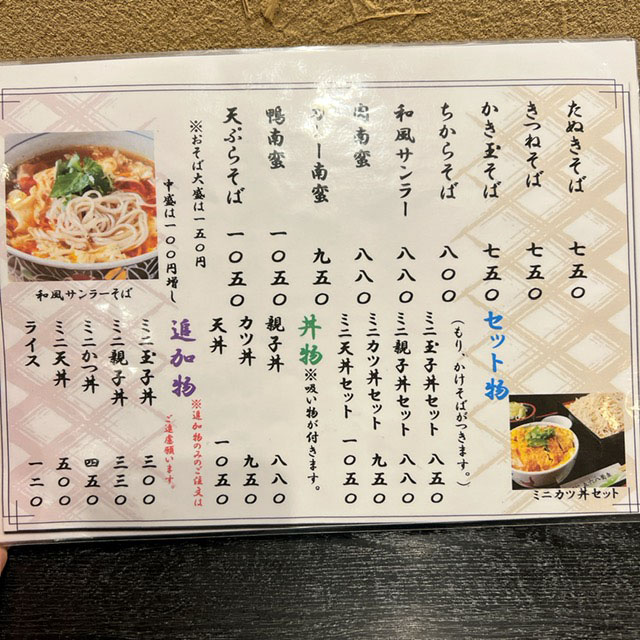 たぬきそば 七五〇
きつねそば 七五〇
かき玉そば 七五〇
ちからそば 八〇〇
和風サンラー 八八〇
肉南蛮 八八〇
カレー南蛮 九五〇
鴨南蛮 一〇五〇
天ぷらそば 一〇五〇
※おそば大盛は一五〇円
中盛は一〇〇円増し
和風サンラーそば
セット物
（もり、かけそばがつきます。）
ミニ玉子丼セット 八五〇
ミニ親子丼セット 八八〇
ミニカツ丼セット 九五〇
ミニ天丼セット 一〇五〇
ミニカツ丼セット
丼物
※吸い物が付きます。
親子丼 八八〇
カツ丼 九五〇
天丼 一〇五〇
追加物
※追加物のみのご注文は
ご遠慮願います。
ミニ玉子丼 三〇〇
ミニ親子丼 三三〇
ミニかつ丼 四五〇
ミニ天丼 五〇〇
ライス 一二〇